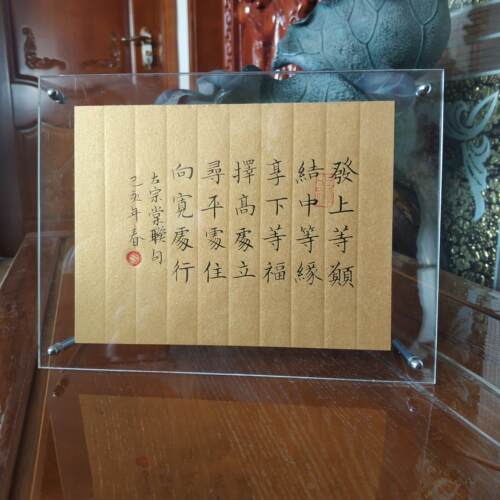 發上等願
結中等緣
享下等福
擇高處立
尋平處住
向寬處行
左宗棠聯句
己亥年春